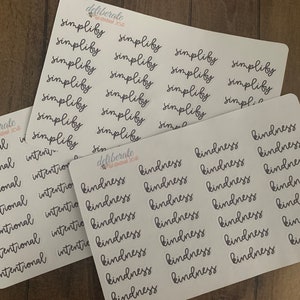 deliberate
simplify simplify simplify simplify
simplify simplify simplify simplify
simplify simplify simplify simplify
simplify simplify simplify
simplify simplify
simplify simplify
simplify
deliberate
intentional
intentional
intentional
intentional
intentional
intentional
deliberate
kindness kindness kindness kindness
kindness kindness kindness kindness
kindness kindness kindness kindness
kindness kindness kindness kindness
kindness kindness kindness kindness
kindness kindness kindness kindness
kindness kindness kindness kindness